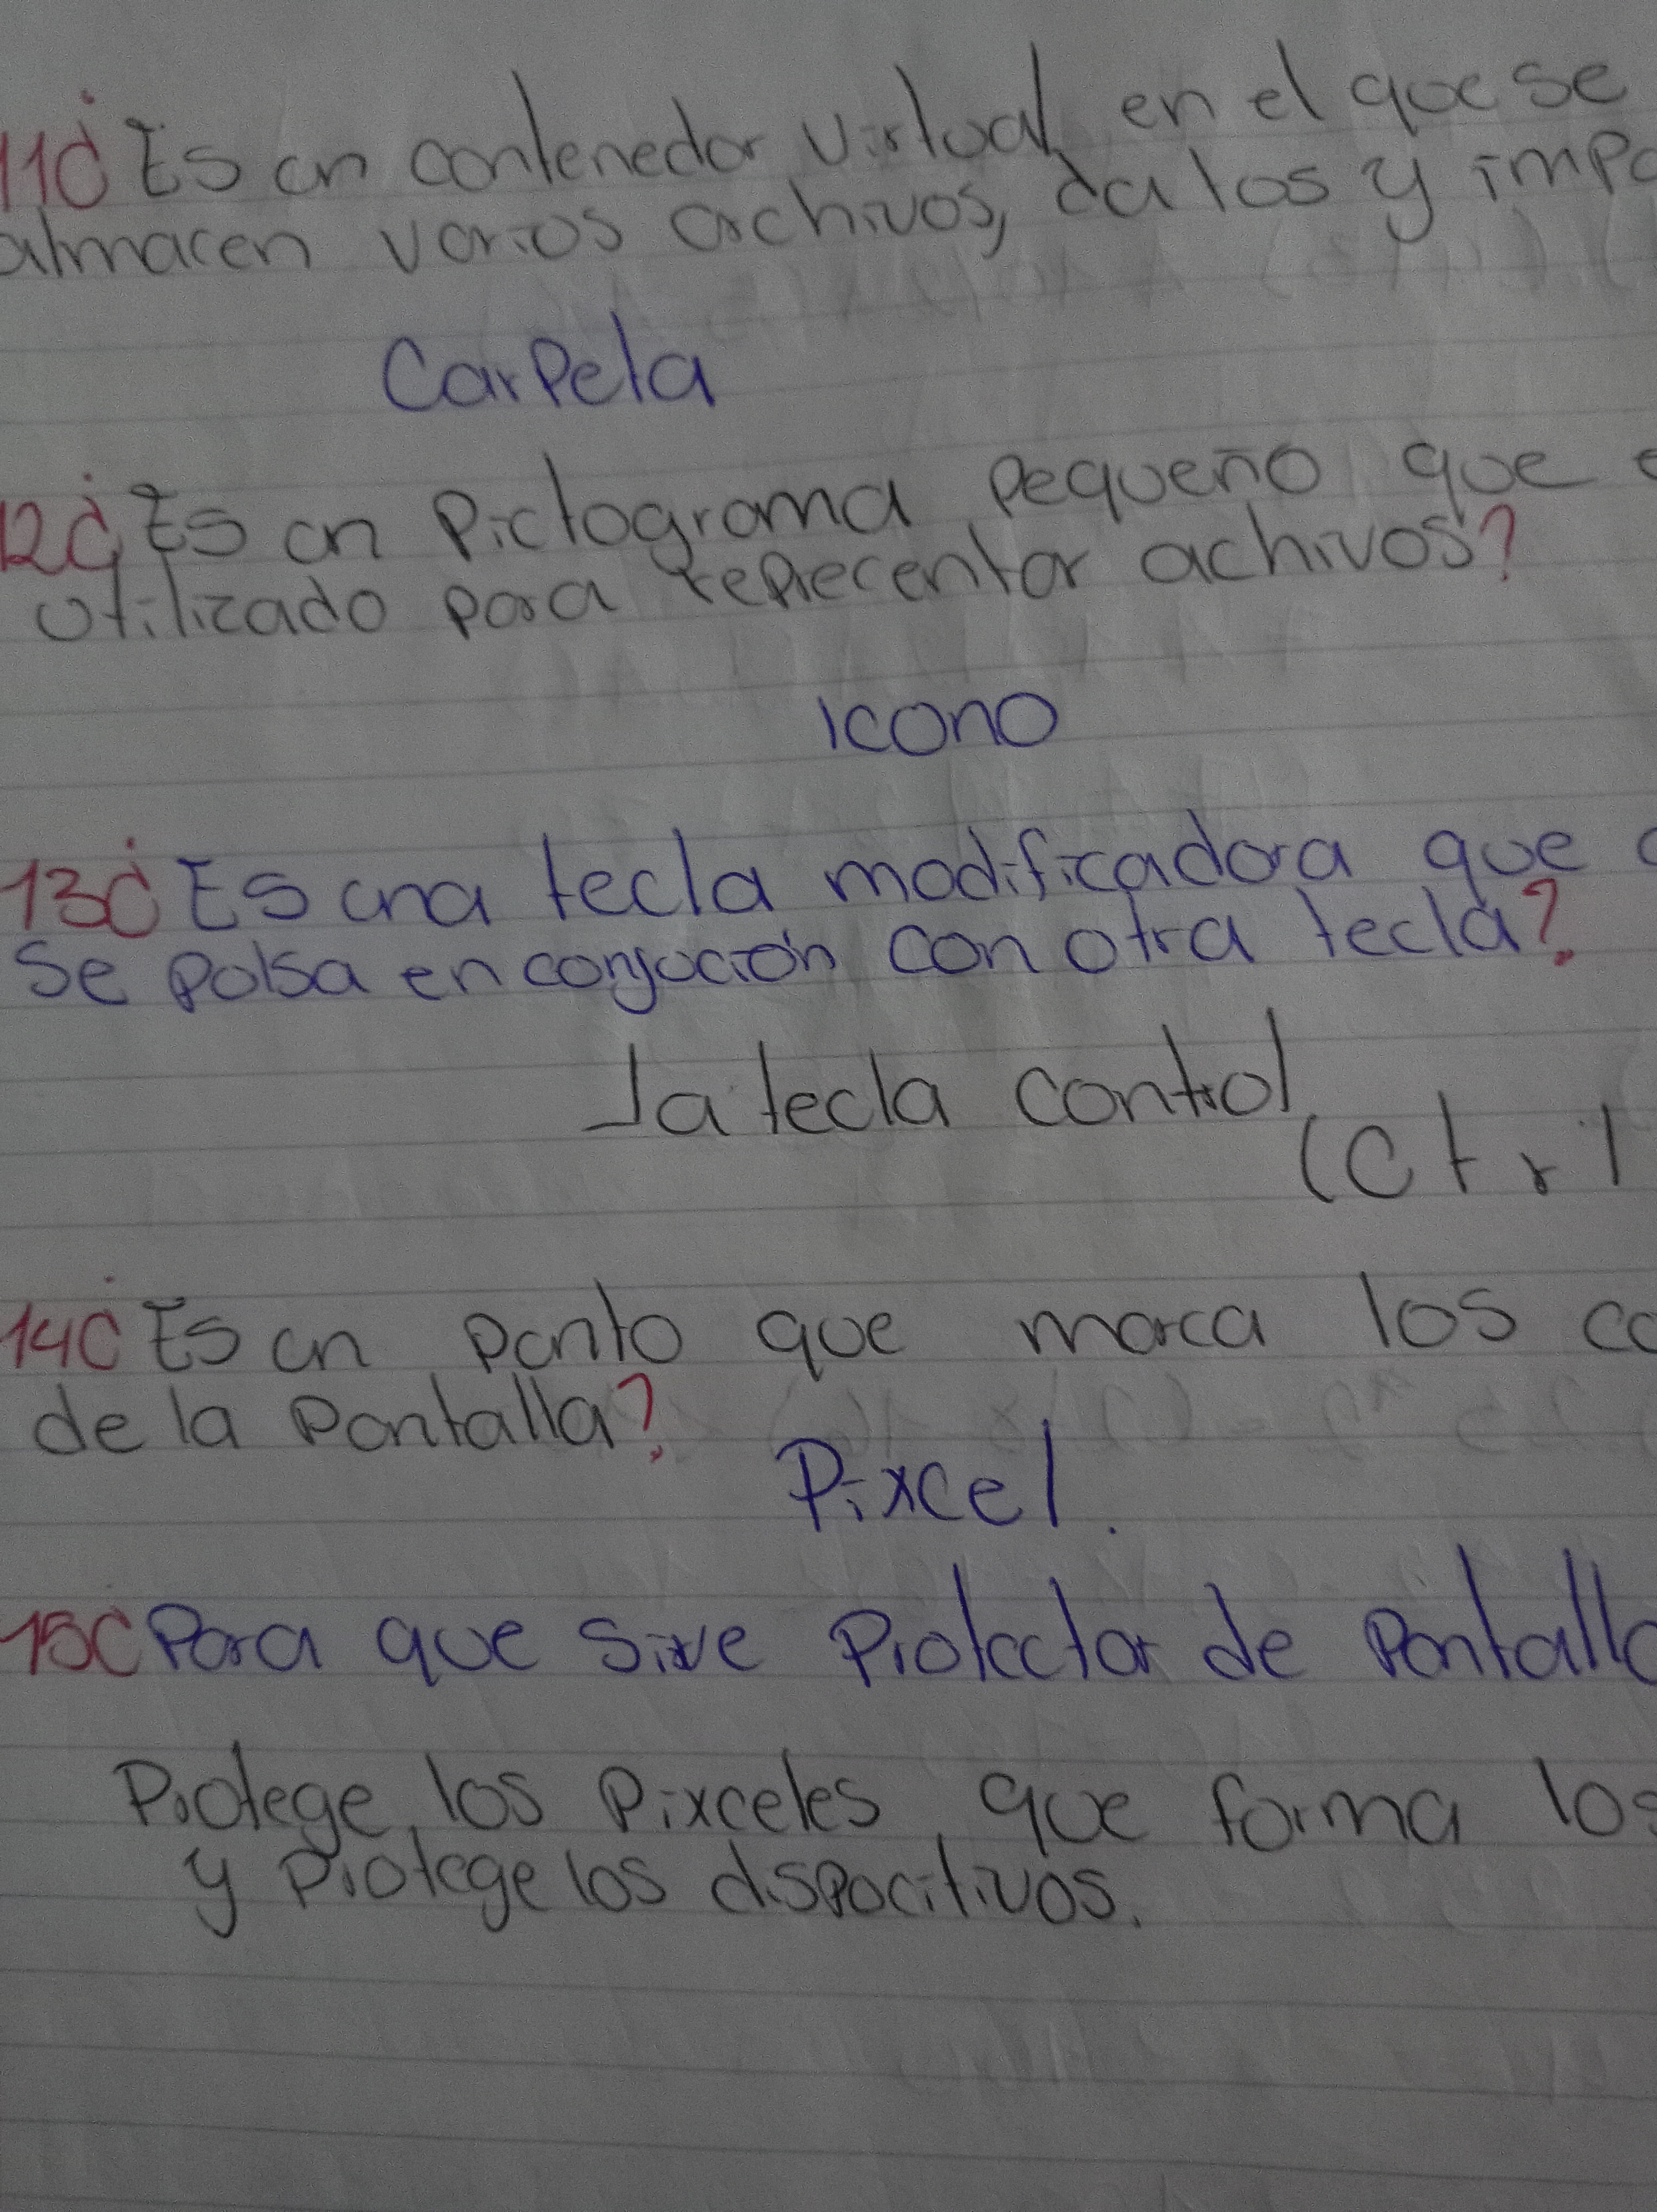 11¿Es un contenedor virtual en el que se
almacen varios archivos, datos y impo
Carpeta
12¿Es un Pictograma pequeño que e
utilizado para reprecentar achivos?
icono
13¿Es una tecla modificadora que
se pulsa en conjución con otra tecla?
La tecla control
(Ctrl
14¿Es un punto que marca los co
de la Pantalla?
Pixcel.
15¿Para que sirve Protector de Pantalla
Protege los Pixceles, que forma los
y Protege los dispocitivos.